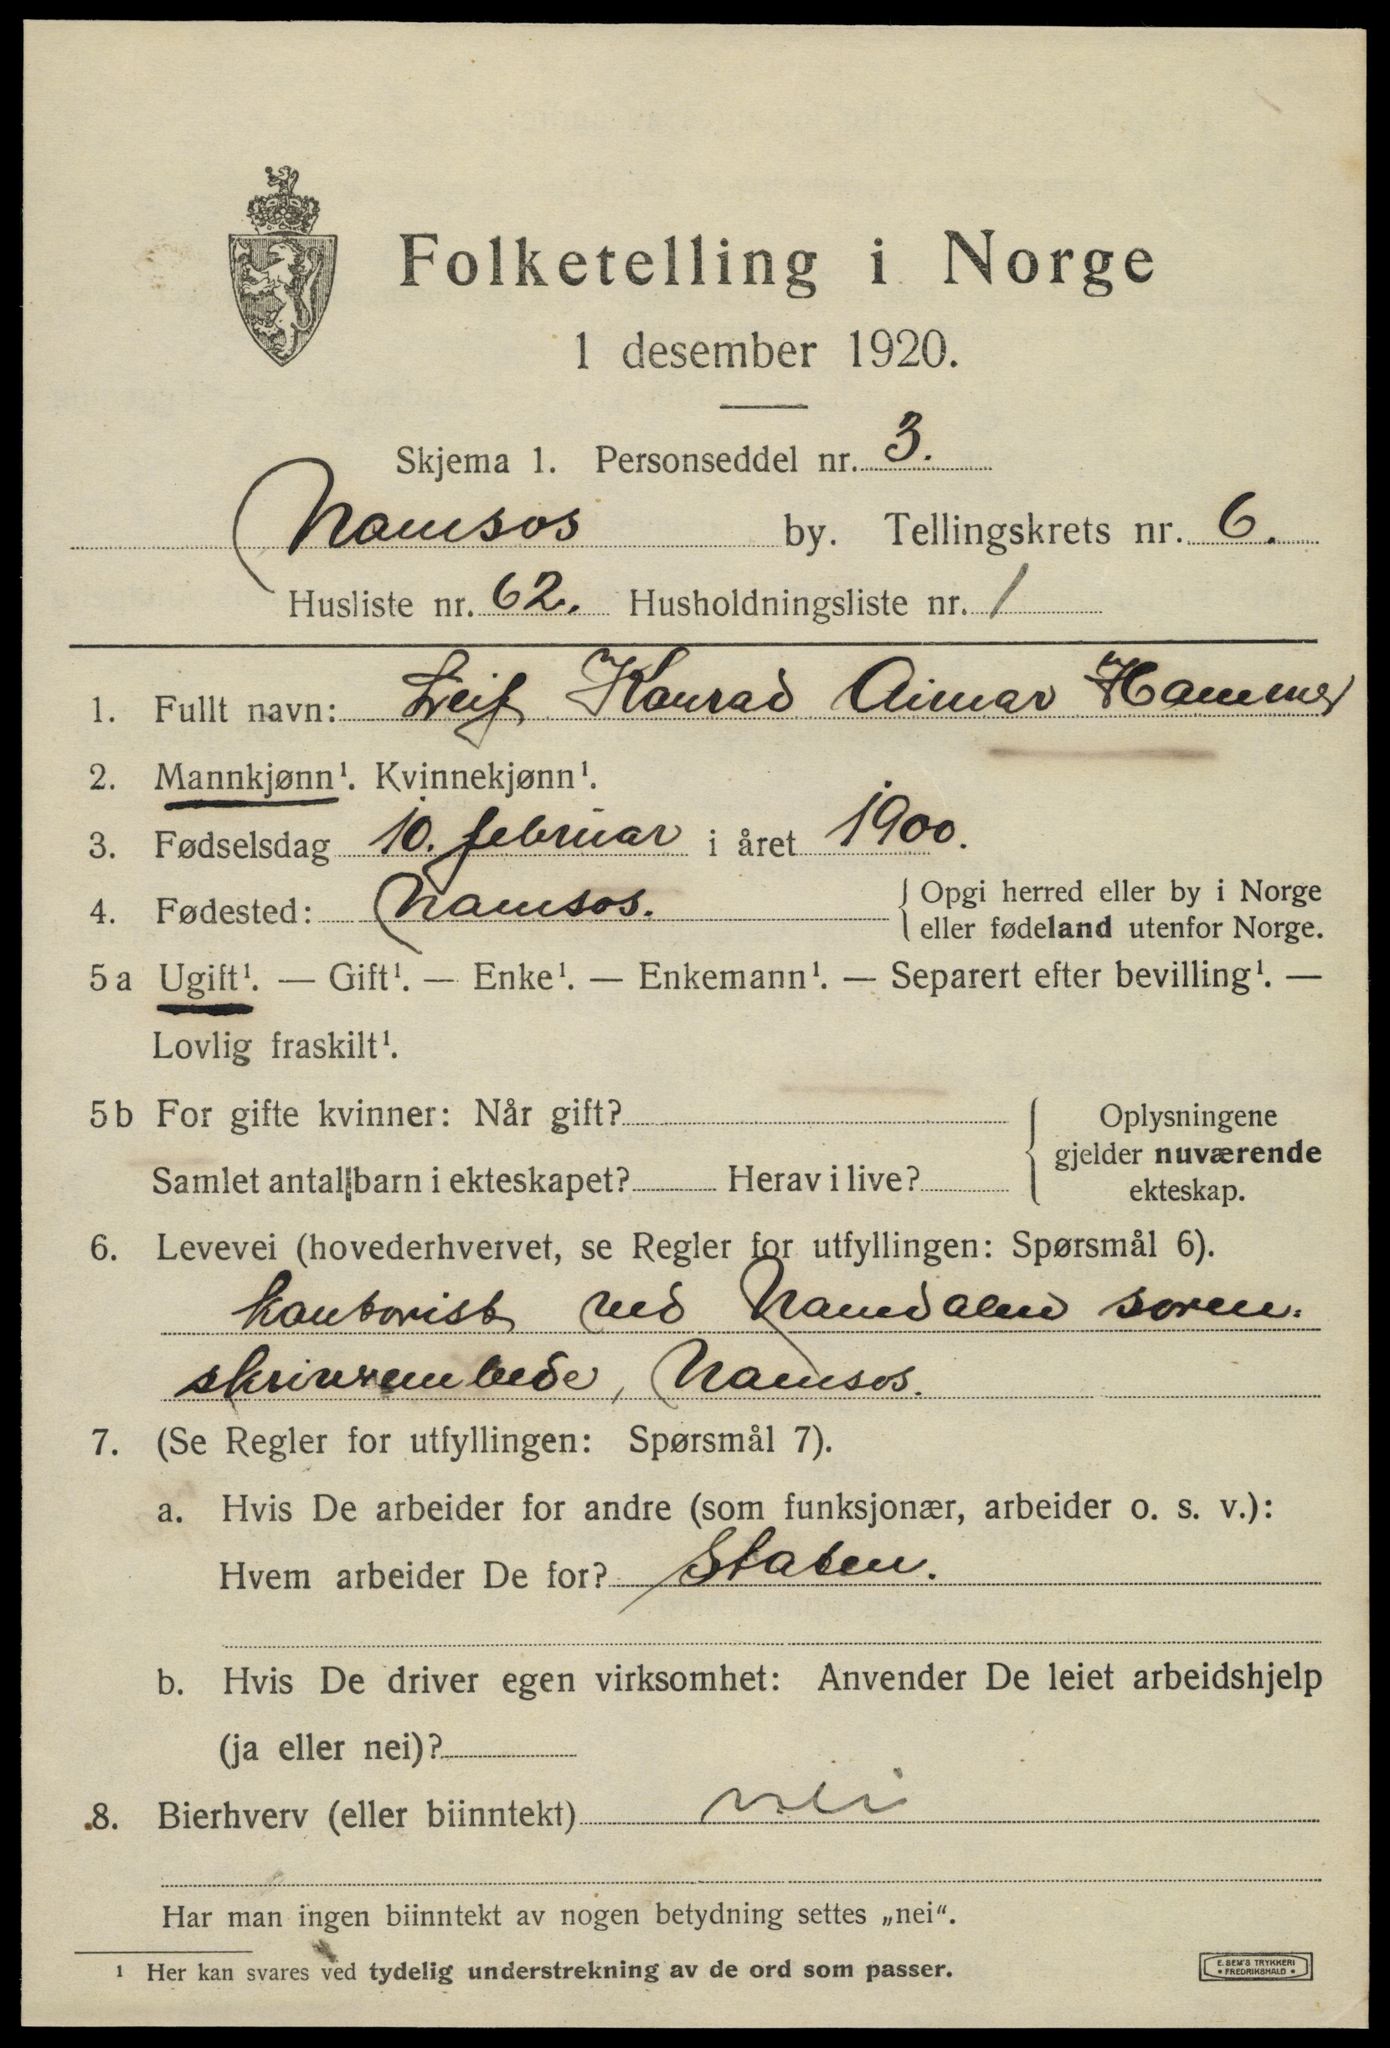 Folketelling i Norge
1 desember 1920.
Skjema 1. Personseddel nr. 3.
Namsos by. Tellingskrets nr. 6.
Husliste nr. 62. Husholdningsliste nr. 1
1. Fullt navn: Leif Konrad Aimar Hammer
2. Mannkjønn¹. Kvinnekjønn¹.
3. Fødselsdag 10. februar i året 1900.
4. Fødested: Namsos. Opgi herred eller by i Norge
eller fødeland utenfor Norge.
5a Ugift¹. — Gift¹. — Enke¹. — Enkemann¹. — Separert efter bevilling¹. —
Lovlig fraskilt¹.
5b For gifte kvinner: Når gift? Oplysningene
gjelder nuværende
Samlet antall barn i ekteskapet? Herav i live? ekteskap.
6. Levevei (hovederhvervet, se Regler for utfyllingen: Spørsmål 6).
kontorist ved Namdalen soren-
skriverembede, Namsos.
7. (Se Regler for utfyllingen: Spørsmål 7).
a. Hvis De arbeider for andre (som funksjonær, arbeider o. s. v.):
Hvem arbeider De for? Staten.
b. Hvis De driver egen virksomhet: Anvender De leiet arbeidshjelp
(ja eller nei)?
8. Bierhverv (eller biinntekt) nei
Har man ingen biinntekt av nogen betydning settes „nei“.
¹ Her kan svares ved tydelig understrekning av de ord som passer.
E. SEM'S TRYKKERI
• FREDRIKSHALD •